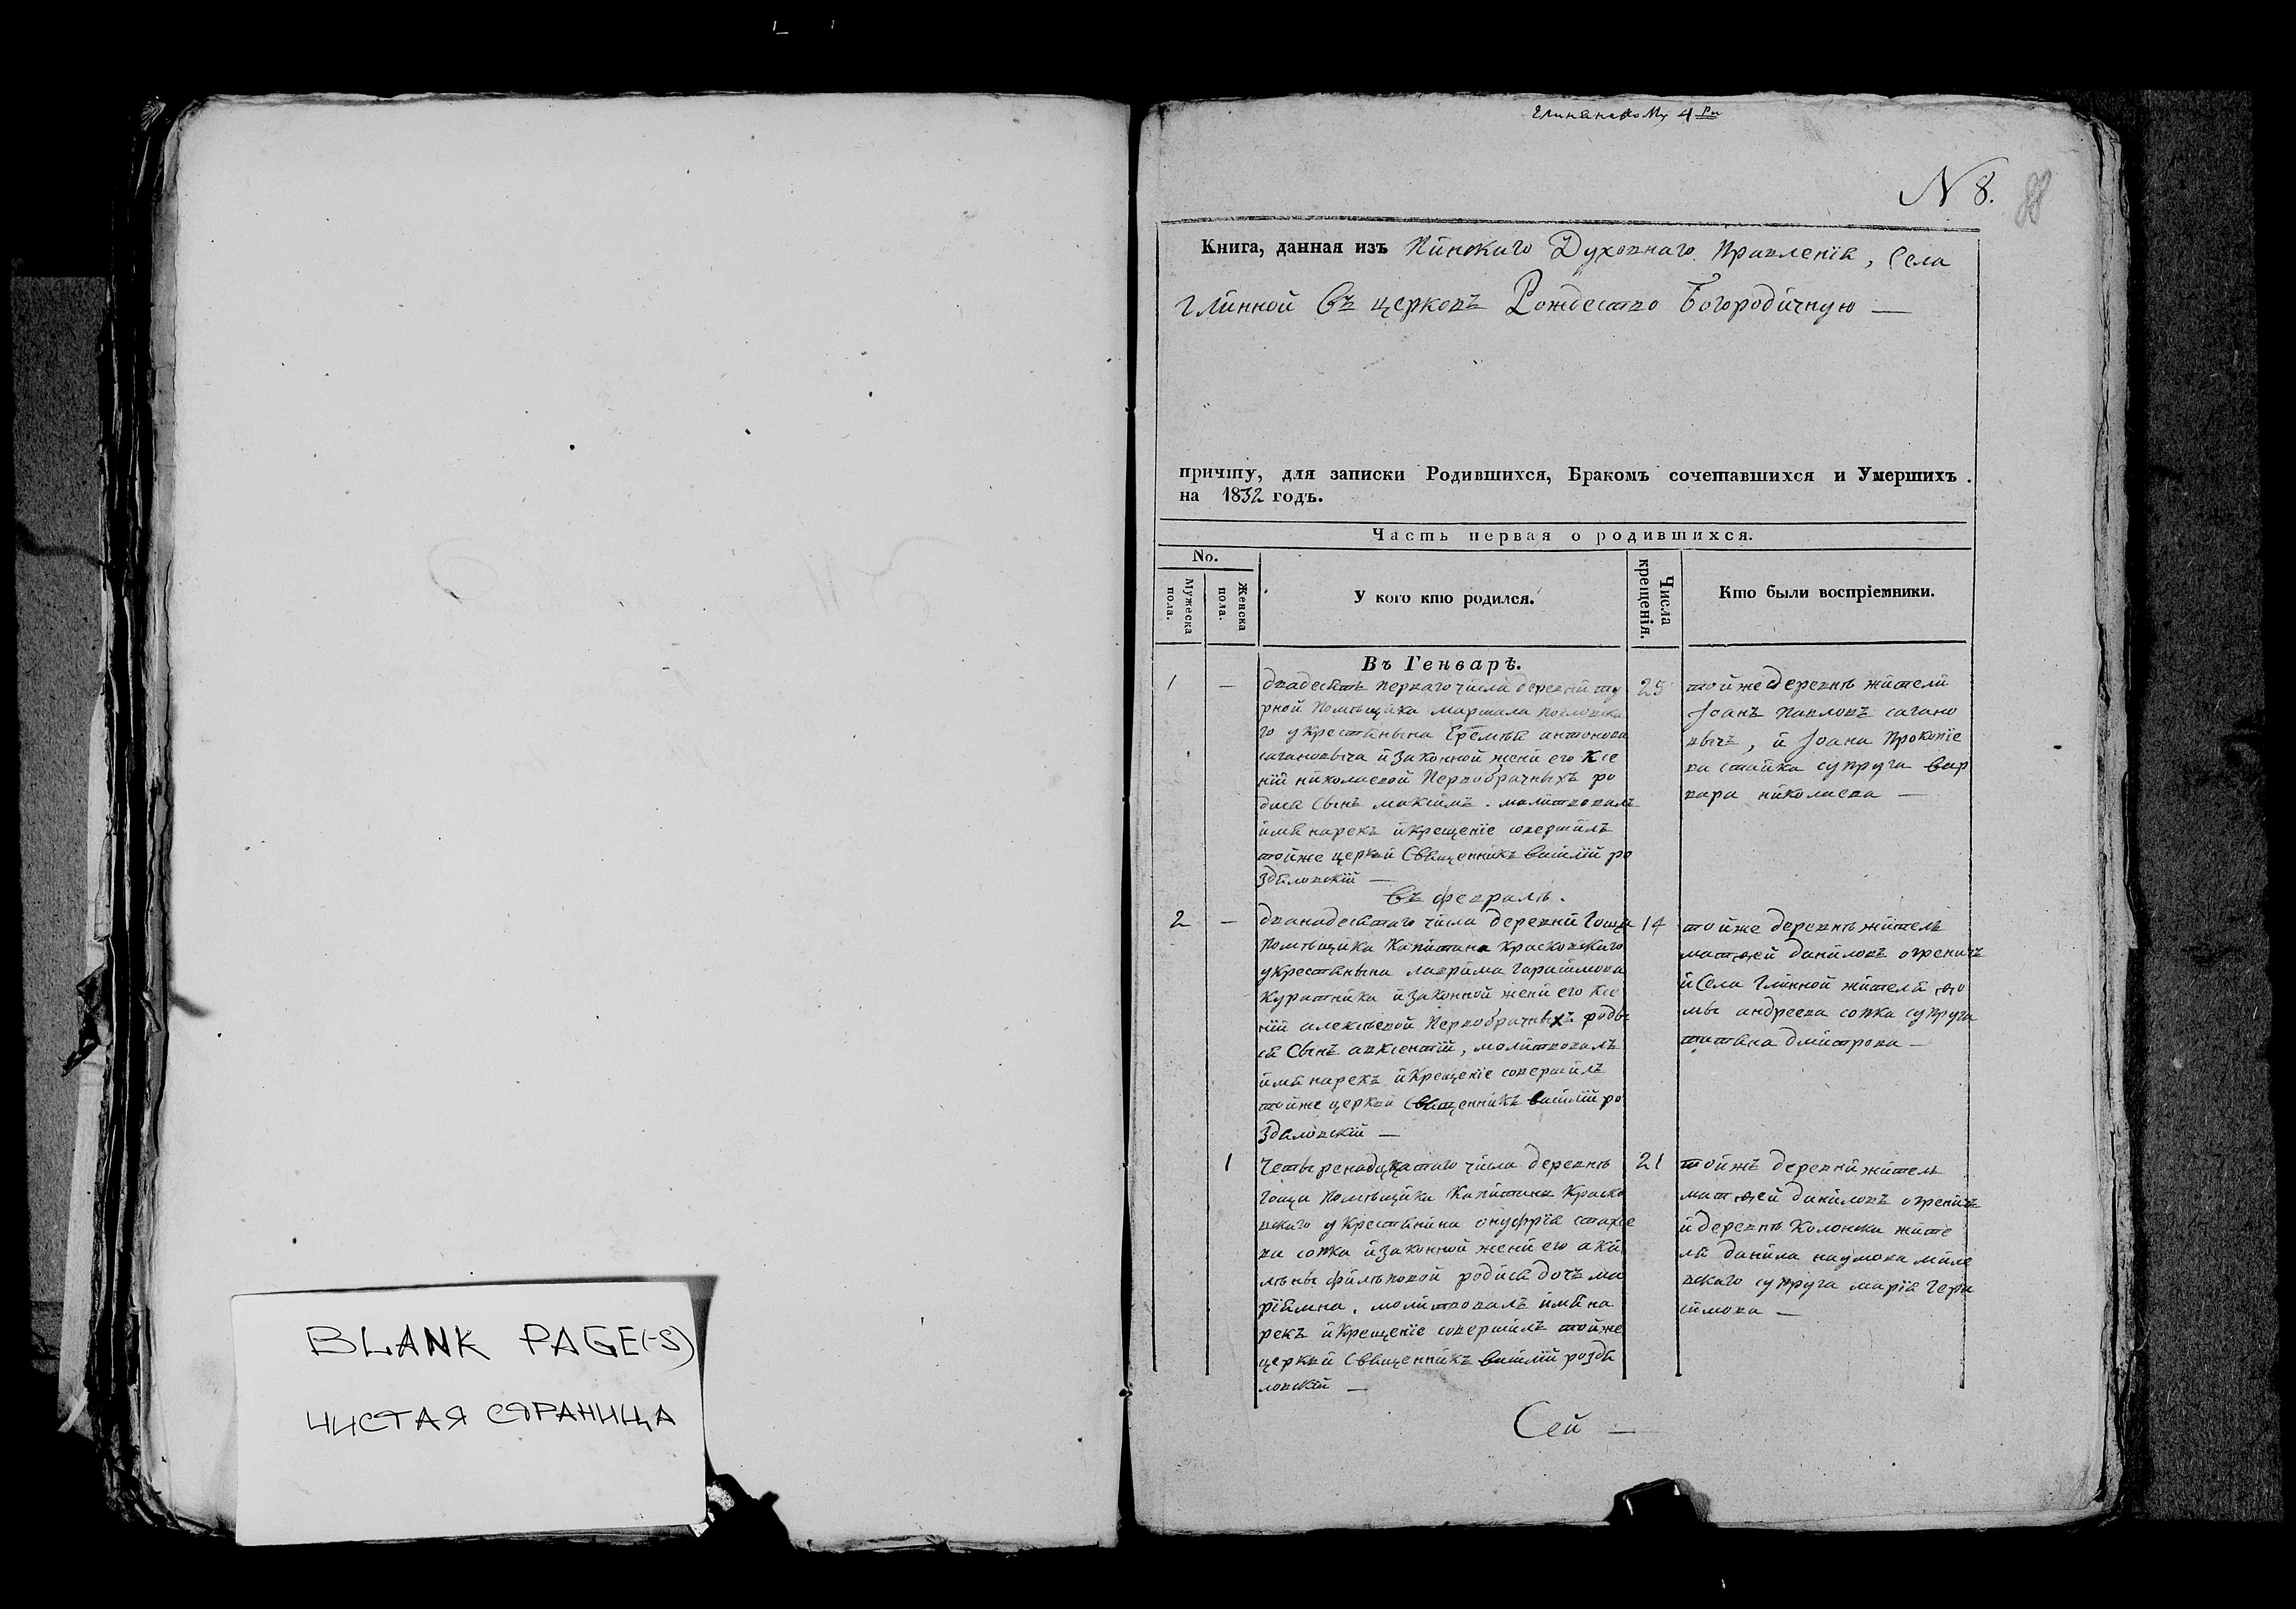 BLANK PAGE(-S)
ЧИСТАЯ СТРАНИЦА
N 8.
88
Книга, данная изъ Пинскаго Духовнаго Правленія, Села
Глинной Въ церковъ Рождество Богородичную —
причту, для записки Родившихся, Бракомъ сочетавшихся и Умершихъ
на 1832 годъ.
Часть первая о родившихся.
No.
Мужеска пола.
Женска пола.
У кого кто родился.
Числа крещенія.
Кто были воспріемники.
Въ Генварѣ.
1 —
двадесять перваго числа деревни ту
рной Помѣщика маршала
го у Крестянина Еремѣя антонова
сагановича и законной жени его Ксе
ніи николаевой Первобрачныхъ ро
дися Сынъ максимъ. молитвовалъ
имя нарекъ и крещеніе совершилъ
тойже церкви Священникъ василій ро
здяловскій —
25
тойже деревнѣ жители
Іоанъ Павловъ сагано
вичъ, и Іоана Прокопіе
ва стайка супруга вар
вара николаева —
въ февралѣ.
2 —
дванадесятаго числа деревни Гоща
Помѣщика Капитана Красковскаго
у Крестянина лаврима гарасимова
Куратника и законной жени его Ксе
ніи алексѣевой Первобрачныхъ роди
ся Сынъ авксентій, молитвовалъ
имя нарекъ и Крещеніе совершилъ
тойже церкви Священникъ василій ро
здяловскій —
14
тойже деревнѣ житель
матѳей даниловъ огреничъ
и Села Глинной жителя ѳо
мы андреева сопка супруга
татяна дмитрова —
1
Четыренадцатаго числа деревнѣ
Гоща Помѣщика Капитана Краско
вскаго у Крестянина онуфрія стахіе
ва сопка и законной жени его аки
лины филиповой родися дочъ ма
ріямна, молитвовалъ имя на
рекъ и Крещеніе совершилъ тойже
церкви Священникъ василій роздя
ловскій —
21
тойжъ деревни житель
матѳей даниловъ огреничъ
и деревнѣ Колонска жите
ля данила наумова миле
вскаго супруга марія гера
симова —
Сей —